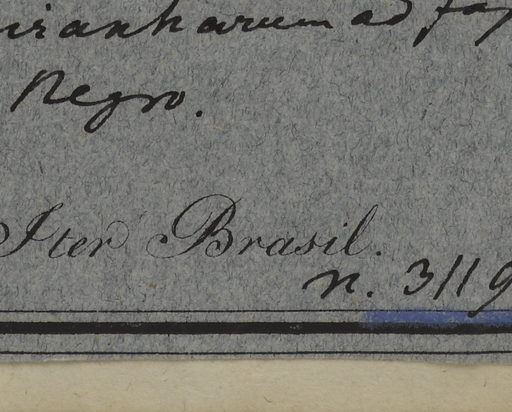 iranharum ad
Negro.
Iter Brasil.
n. 3119